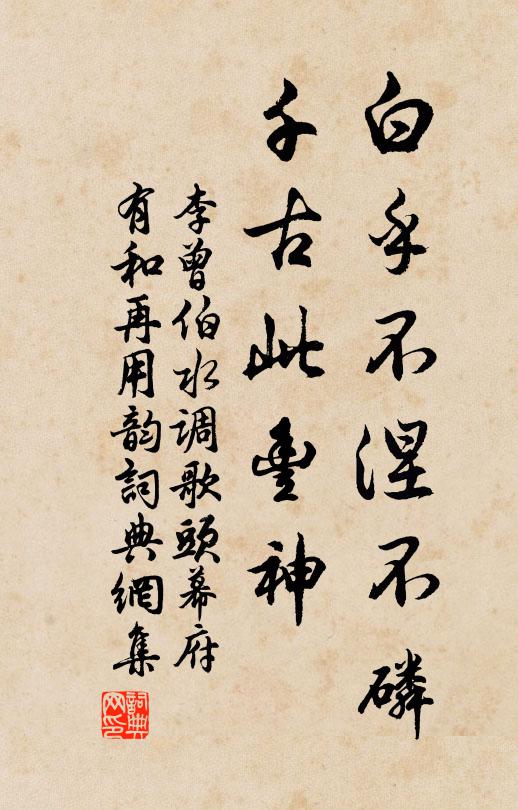 白乎不涅不磷
千古此豊神
李曾伯水调歌頭幕府
有和再用韵詞典網集
詞典
网印